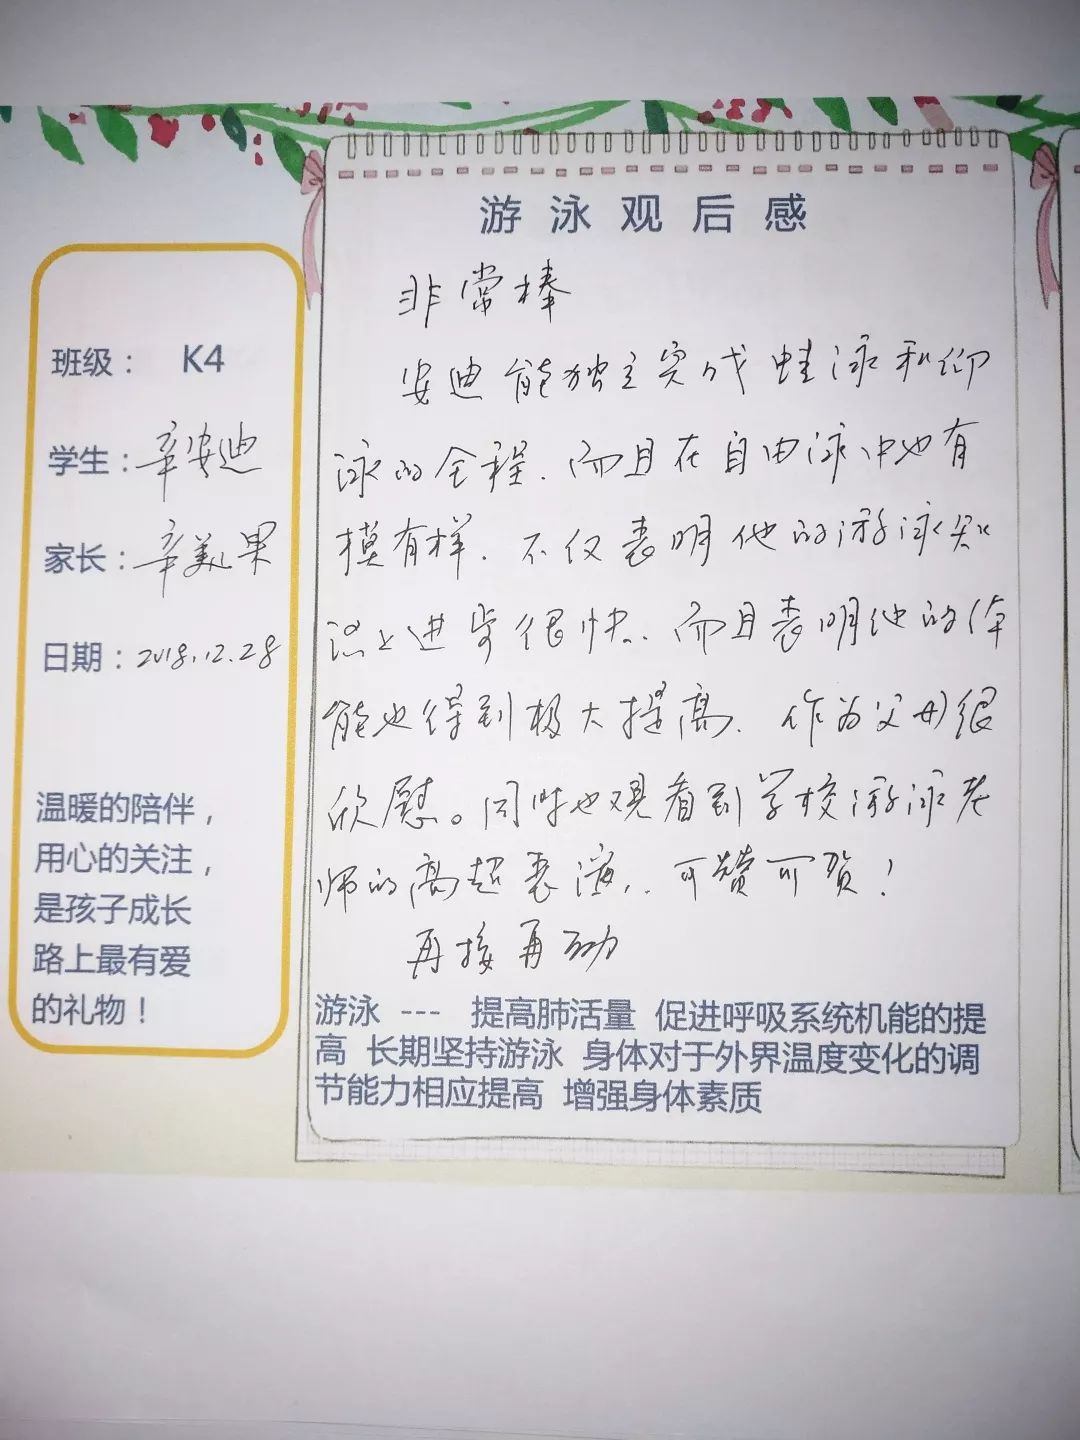 游泳观后感
班级： K4
学生：辛安迪
家长：辛美果
日期：2018.12.28
温暖的陪伴，
用心的关注，
是孩子成长
路上最有爱
的礼物！
非常棒
安迪能独立完成蛙泳和仰
泳的全程.而且在自由泳中也有
模有样.不仅表明他的游泳知
识上进步很快.而且表明他的体
能也得到极大提高.作为父母很
欣慰。同时也观看到学校游泳老
师的高超表演..可赞可贺！
再接再励
游泳 --- 提高肺活量 促进呼吸系统机能的提
高 长期坚持游泳 身体对于外界温度变化的调
节能力相应提高 增强身体素质